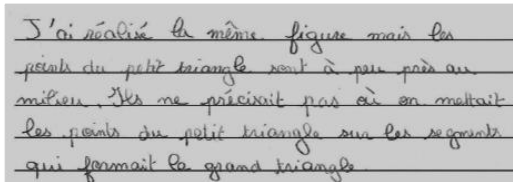 J'ai réalisé la même figure mais les
points du petit triangle sont à peu près au
milieu. Ils ne précisait pas où on mettait
les points du petit triangle sur les segments
qui formait la grand triangle.